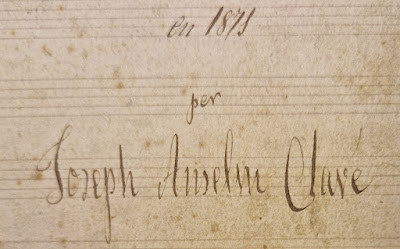 en 1871
per
Joseph Anselm Clavé